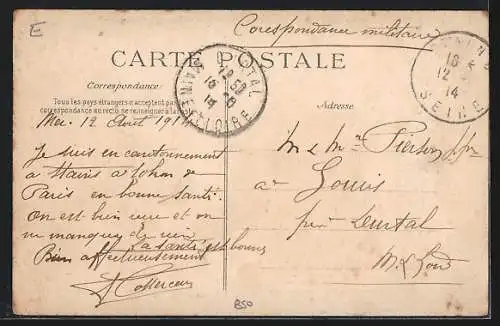 E
Corespondance militaire
CARTE POSTALE
Correspondance
Tous les pays étrangers n'acceptent pas
correspondance au recto se renseigner à la
Adresse
12 Aout 191
Je suis en cantonnement
à Stains a
Paris en bonne Santé.
On est bien vue et on
ne manque de rien
la santé est bonne
Bien affectueusement
M & Mme Pierson
a Louis
par Durtal
M & Loire
DURTAL
MAINE ET LOIRE
SEINE
14
850